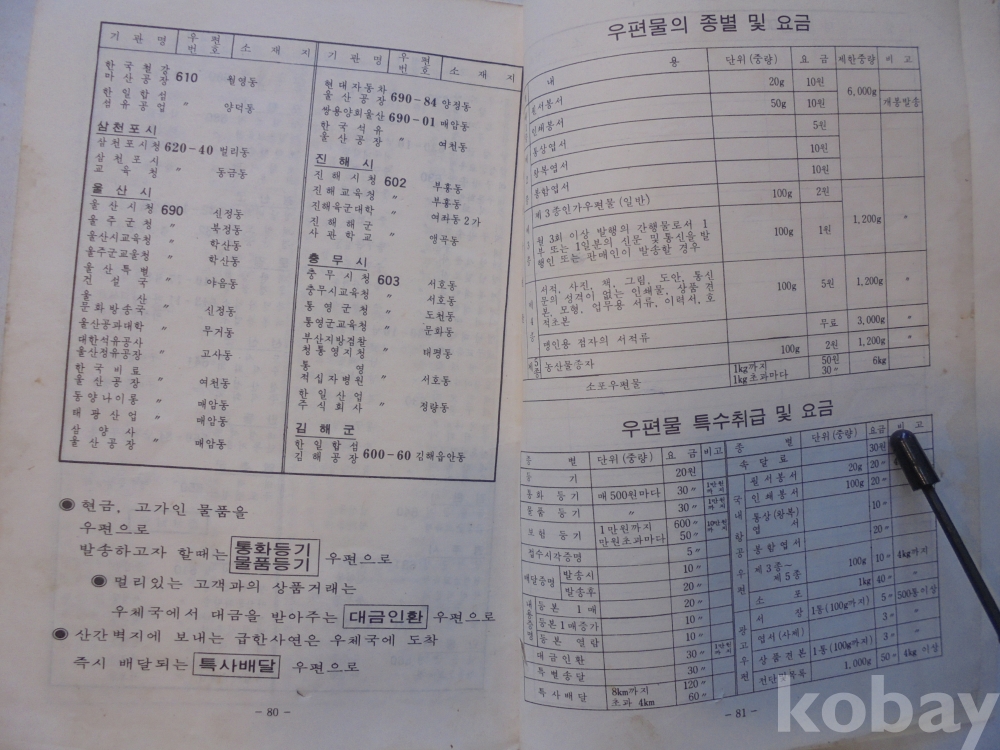 기관명 우편번호 소재지
한국철강
마산공장 610 월영동
한일합섬
섬유공업 〃 양덕동
삼천포시
삼천포시청 620-40 벌리동
삼천포시
교육청 〃 동금동
울산시
울산시청 690 신정동
울주군청 〃 북정동
울산시교육청 〃 학산동
울주군교육청 〃 학산동
울산특별
건설국 〃 야음동
울산
문화방송국 〃 신정동
울산공과대학 〃 무거동
대한석유공사
울산정유공장 〃 고사동
한국비료
울산공장 〃 여천동
동양나이롱 〃 매암동
태광산업 〃 매암동
삼양사
울산공장 〃 매암동
기관명 우편번호 소재지
현대자동차
울산공장 690-84 양정동
쌍용양회울산 690-01 매암동
한국석유
울산공장 〃 여천동
진해시
진해시청 602 부흥동
진해교육청 〃 부흥동
진해육군대학 〃 여좌동2가
진해해군
사관학교 〃 앵곡동
충무시
충무시청 603 서호동
충무시교육청 〃 서호동
통영군청 〃 도천동
통영군교육청 〃 문화동
부산지방검찰
청통영지청 〃 태평동
통영
적십자병원 〃 서호동
한일산업
주식회사 〃 정량동
김해군
한일합섬
김해공장 600-60 김해읍안동
◉ 현금, 고가인 물품을
우편으로
발송하고자 할때는 통화등기 물품등기 우편으로
◉ 멀리있는 고객과의 상품거래는
우체국에서 대금을 받아주는 대금인환 우편으로
◉ 산간벽지에 보내는 급한사연은 우체국에 도착
즉시 배달되는 특사배달 우편으로
- 80 -
우편물의 종별 및 요금
내용 단위(중량) 요금 제한중량 비고
월서봉서 20g 10원 6,000g
인쇄봉서 50g 10원 개봉발송
통상엽서 5원
왕복엽서 10원
봉함엽서 10원
제3종인가우편물(일반) 100g 2원 1,200g 〃
월 3회 이상 발행의 간행물로서 1
부 또는 1일분의 신문 및 통신을 발
행인 또는 판매인이 발송할 경우 100g 1원
서적, 사진, 책, 그림, 도안, 통신
문의 성격이 없는 인쇄물, 상품 견
본, 모형, 업무용 서류, 이력서, 호
적초본 100g 5원 1,200g 〃
맹인용 점자의 서적류 무료 3,000g 〃
제5종 농산물종자 100g 2원 1,200g 〃
소포우편물 1kg까지 50원 6kg
1kg초과마다 30〃
우편물 특수취급 및 요금
종별 단위(중량) 요금 비고
등기 20원
통화등기 매500원마다 30〃 1만원까지
물품등기 〃 30〃
보험등기 1만원까지 600〃
만원초과마다 50〃
접수시각증명 5〃
배달증명 발송시 10〃
발송후 20〃
내용증명 등본 1매 20〃
등본1매증가 10〃
등본열람 10〃
대금인환 30〃
특별송달 30〃
특사배달 8km까지 120〃
초과 4km 60〃
종별 단위(중량) 요금 비고
속달료 30원
국내항공우편
월서봉서 20g 20〃
인쇄봉서 100g 20〃
통상(왕복)
엽서 10〃
봉함엽서 20〃
제3종~
제5종 100g 10〃 4kg까지
소포 1kg 40〃
광고우편
서장 1통(100g까지) 5〃 500통이상
엽서(사제) 3〃 〃
상품견본 1통(100g까지) 3〃 〃
전단식목록 1,000g 50〃 4kg이상
- 81 -
kobay